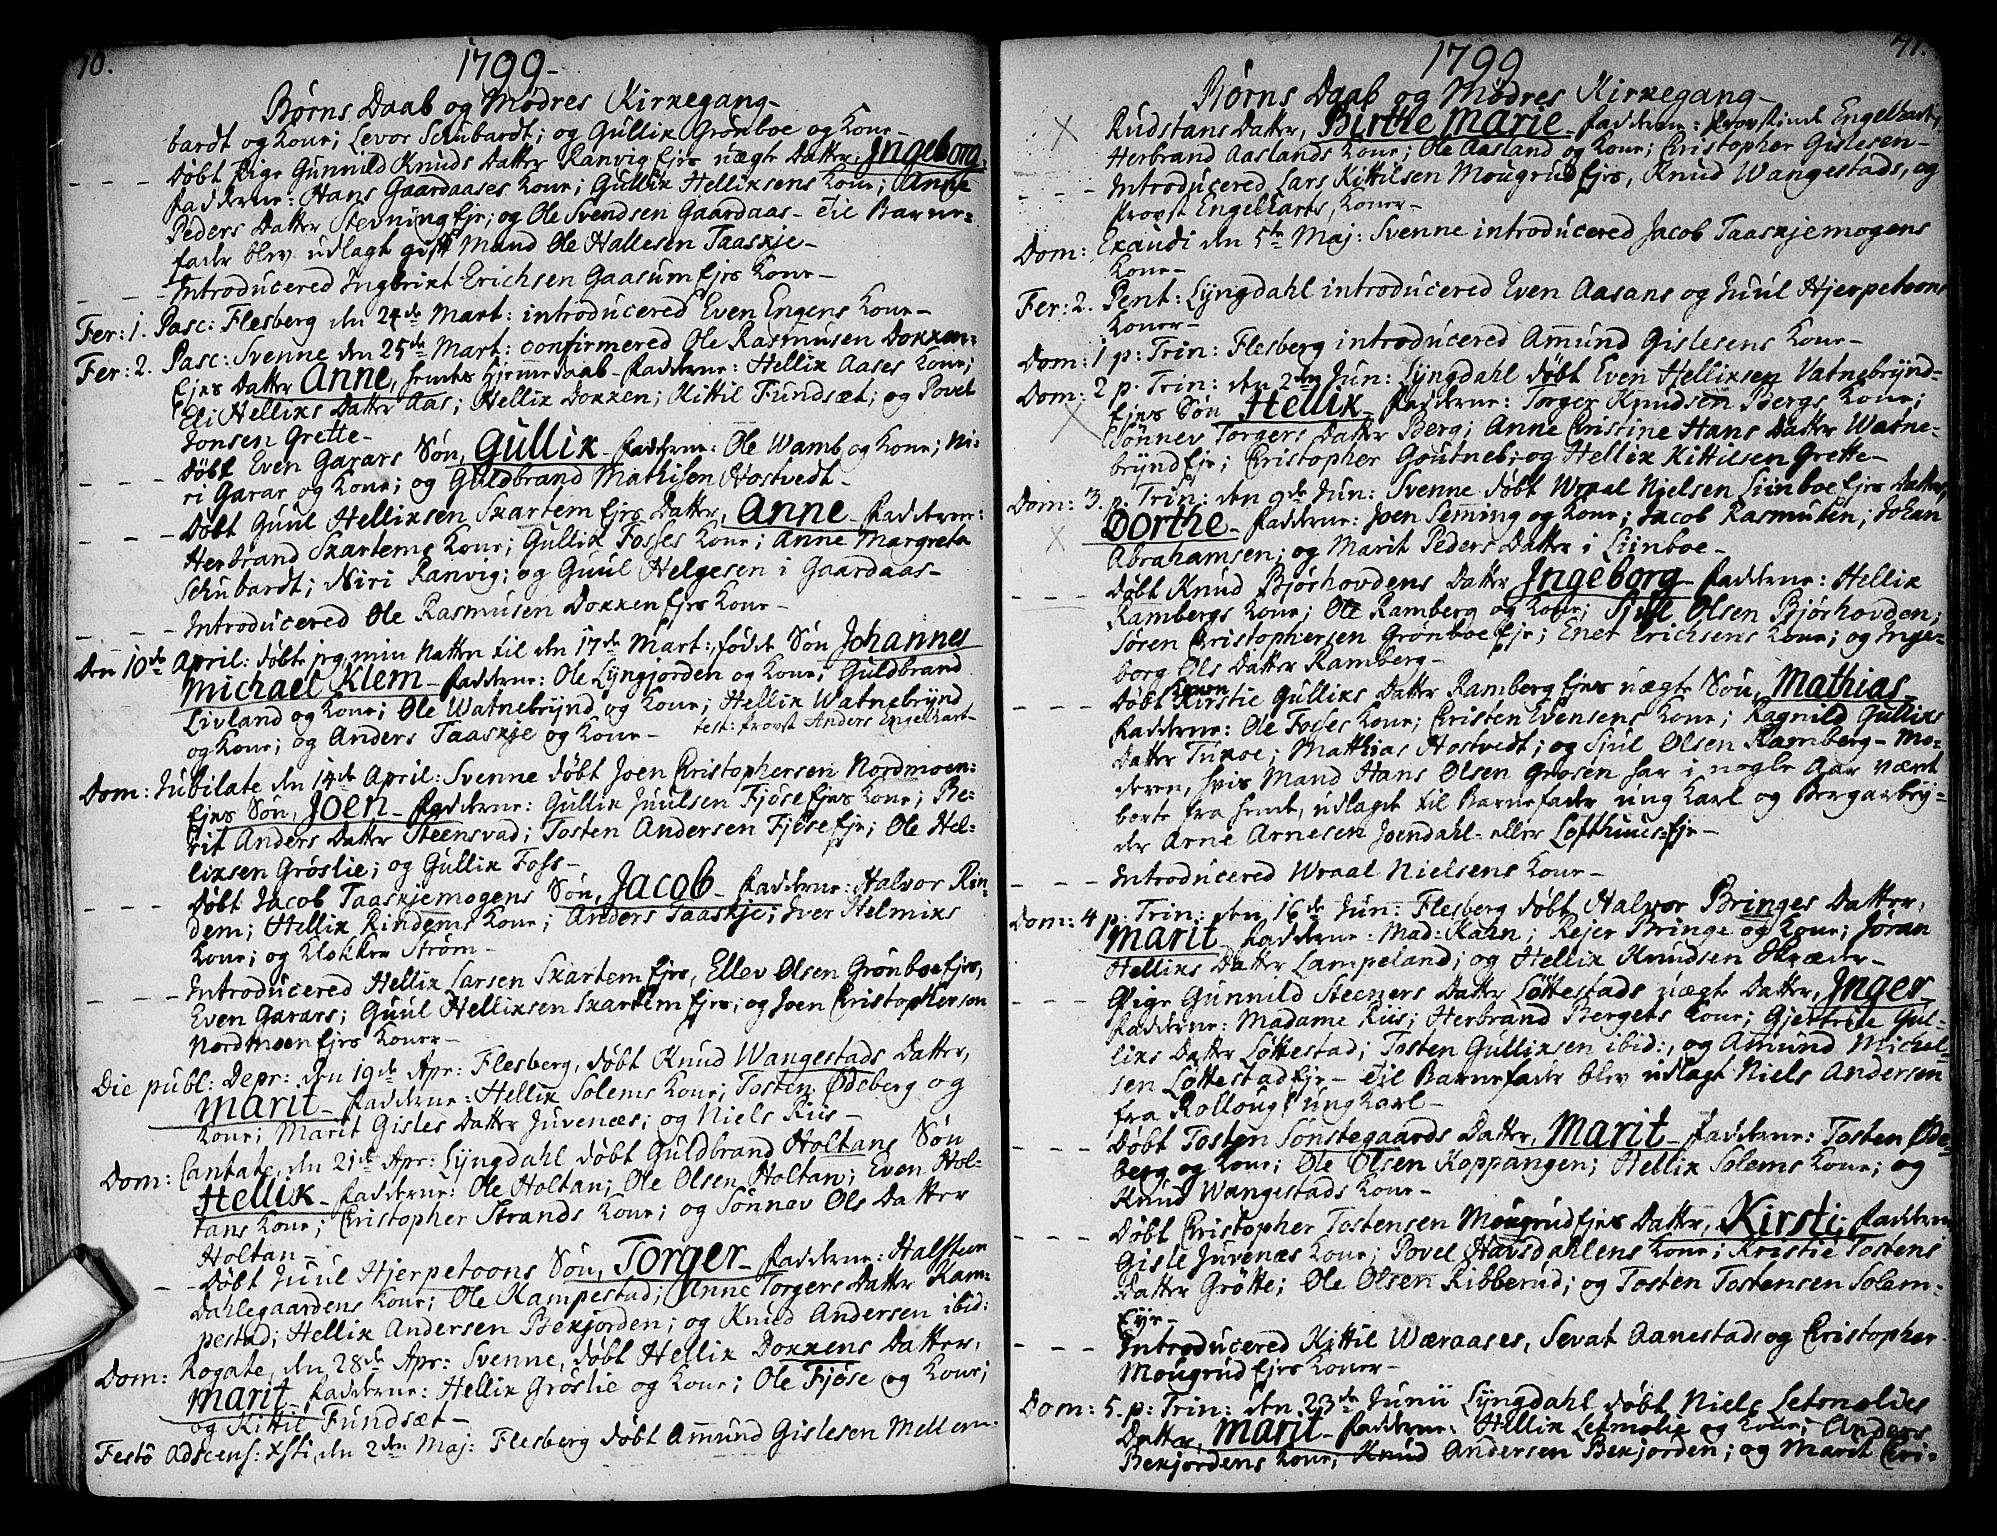 70.
1799.
Børns Daab og Mødres Kirkegang
bardt og Kone; Levor Schubardt; og Gullik Grønboe og Kone
- - - Døbt Pige Gunnild Knuds Datter Ranvig Ejes uægte Datter, Ingeborg.
Fadderne: Hans Gaardaases Kone; Gullik Helliksens Kone; Anne
Peders Datter Stevning Eje; og Ole Svendsen Gaardaas - Til Barne-
fader blev udlagt gift Mand Ole Hallesen Taaskje -
- - - Introducered Ingbrikt Erichsen Gaasum Ejes Kone -
Fer: 1. Pasc: Flesberg den 24de Mart: introducered Even Engens Kone -
Fer: 2. Pasc: Svenne den 25de Mart: confirmered Ole Rasmusen Dokken-
Ejes Datter Anne, hendes Hjemmedaab - Fadderne: Hellik Aases Kone;
Eli Helliks Datter Aas; Hellik Dokken; Kittil Fundsæt; og Povel
Jonsen Grette -
- - - Døbt Even Garars Søn, Gullik - Fadderne: Ole Wamb og Kone; Ni-
ri Garar og Kone; og Guldbrand Mathisen Hostvedt -
- - - Døbt Guul Helliksen Skartem Ejes Datter, Anne - Fadderne:
Herbrand Skartems Kone; Gullik Fosses Kone; Anne Margreta
Schubardt; Niri Ranvig; og Guul Helgesen i Gaardaas -
- - - Introducered Ole Rasmusen Dokken Ejes Kone -
Den 10de April: døbte jeg min Natten til den 17de Mart: fødde Søn Johannes
Michael Klem - Fadderne: Ole Lyngjorden og Kone; Guldbrand
Livland og Kone; Ole Watnebrynd og Kone; Hellik Watnebrynd
og Kone; og Anders Taaskje og Kone - test: Provst Anders Engelhart -
Dom: Jubilate den 14de April: Svenne døbt Joen Christophersen Nordmoen-
Ejes Søn, Joen - Fadderne: Gullik Juulsen Fjøse Ejes Kone; Be-
rit Anders Datter Steensvad; Tosten Andersen Fjøse Eje; Ole Hel-
liksen Grøslie; og Gullik Foss -
- - - Døbt Jacob Taaskjemogens Søn, Jacob - Fadderne: Halvor Rin-
dem; Hellik Rindems Kone; Anders Taaskje; Iver Helmiks
Kone; og Klokker Strøm -
- - - Introducered Hellik Larsen Skartem Ejes, Ellev Olsen Grønboe Ejes,
Even Garars; Guul Helliksen Skartem Ejes; og Joen Christophersen
Nordmoen Ejes Koner -
Die publ: Depr: den 19de Apr: Flesberg, døbt Knud Wangestads Datter,
Marit - Fadderne: Hellik Solems Kone; Tosten Ødeberg og
Kone; Marit Gisles Datter Juvenæs; og Niels Ruus -
Dom: Cantate, den 21de Apr: Lyngdahl døbt Guldbrand Holtans Søn
Hellik - Fadderne: Ole Holtan; Ole Olsen Holtan; Even Hol-
tans Kone; Christopher Strands Kone; og Sønnev Ols Datter
Holtan -
- - Døbt Juul Hjerpetoons Søn, Torger - Fadderne: Halsteen
Dahlegaardens Kone; Ole Kampestad; Anne Torgers Datter Kam-
pestad; Hellik Andersen Bekjorden; og Knud Andersen ibid:
Dom: Rogate, den 28de Apr: Svenne, døbt Hellik Dokkens Datter,
Marit - Fadderne: Hellik Grøslie og Kone; Ole Fjøse og Kone;
og Kittil Fundsæt -
Festo Adscens: Xsti, den 2den Maj: Flesberg døbt Amund Gislesen Mellem-
71.
1799
Børns Daab og Mødres Kirkegang -
Rudstans Datter, Birthe Marie - Fadderne: Provstinde Engelhart;
Herbrand Aaslands Kone; Ole Aasland og Kone; Christopher Gislesen -
- - Introducered Lars Kittilsen Mougrud Ejes, Knud Wangestads, og
Provst Engelharts, Koner -
Dom: Exaudi den 5te Maj: Svenne introducered Jacob Taaskjemogens
Kone -
Fer: 2. Pent: Lyngdahl introducered Even Aasans og Juul Hjerpetoons
Koner -
Dom: 1 p: Trin: Flesberg introducered Amund Gislesens Kone -
Dom: 2 p. Trin: den 2den Jun: Lyngdahl døbt Even Helliksen Vatnebrynd-
Ejes Søn Hellik - Fadderne: Torger Knudsen Bergs Kone;
Sønnev Torgers Datter Berg; Anne Christine Hans Datter Watne-
brynd Eje; Christopher Goutneb; og Hellik Kittilsen Grette -
Dom: 3. p. Trin: den 9de Jun: Svenne døbt Wraal Nielsen Liinboe Ejes Datter,
Dorthe - Fadderne: Joen Seming og Kone; Jacob Rasmusen; Johan
Abrahamsen; og Marit Peders Datter i Liinboe -
- - - Døbt Knud Bjørhovdens Datter Ingeborg - Fadderne: Hellik
Rambergs Kone; Ole Ramberg og Kone; Sjul Olsen Bjørhovden;
Søren Christophersen Grønboe Eje; Ener Erichsens Kone; og Inge-
borg Ols Datter Ramberg -
- - - Døbt Konen Kirstie Gulliks Datter Ramberg Ejes uægte Søn, Mathias -
Fadderne: Ole Fosses Kone; Christen Evensens Kone; Ragnild Gulliks
Datter Tukoe; Matthias Hostvedt; og Sjul Olsen Ramberg - Mo-
deren, hvis Mand Hans Olsen Grosen har i nogle Aar været
borte fra hende, udlagde til Barnefader ung Karl og Bergarbey-
der Arne Arnesen Joendahl- eller Lofthuus-Eje -
- - - Introducered Wraal Nielsens Kone -
Dom: 4 p: Trin: den 16de Jun: Flesberg døbt Halvor Bringes Datter,
Marit - Fadderne: Mad: Kahn; Rejer Bringe og Kone; Jøran
Helliks Datter Lampeland; og Hellik Knudsen Skræder -
- - - Pige Gunnild Steeners Datter Løttestads uægte Datter, Inger -
Fadderne: Madame Rus; Herbrand Bergets Kone; Gjertrue Gul-
liks Datter Løttestad; Tosten Gulliksen ibid:, og Amund Michel-
sen Løttestad Eje - Til Barnefader blev udlagt Niels Andersen
fra Rolloug, ung Karl -
- - - Døbt Tosten Sønstegaards Datter, Marit - Fadderne: Tosten Øde-
berg og Kone; Ole Olsen Koppangen; Hellik Solems Kone; og
Knud Wangestads Kone -
- - - Døbt Christopher Tostensen Mougrud Ejes Datter, Kirsti; Fadderne
Gisle Juvenæs Kone; Povel Havsdahlens Kone; Kristie Tostens
Datter Grøtte; Ole Olsen Ribberud; og Tosten Tostensen Solem-
Eje -
- - - Introducered Kittil Wæraases, Sevat Aanestads og Christopher
Mougrud Ejes Koner -
Dom: 5. p: Trin: den 23de Junii Lyngdahl døbt Niels Letmoldes
Datter, Marit - Fadderne: Hellik Letmolie og Kone; Anders
Bekjordens Kone; Knud Andersen Bekjorden; og Marit Chri-